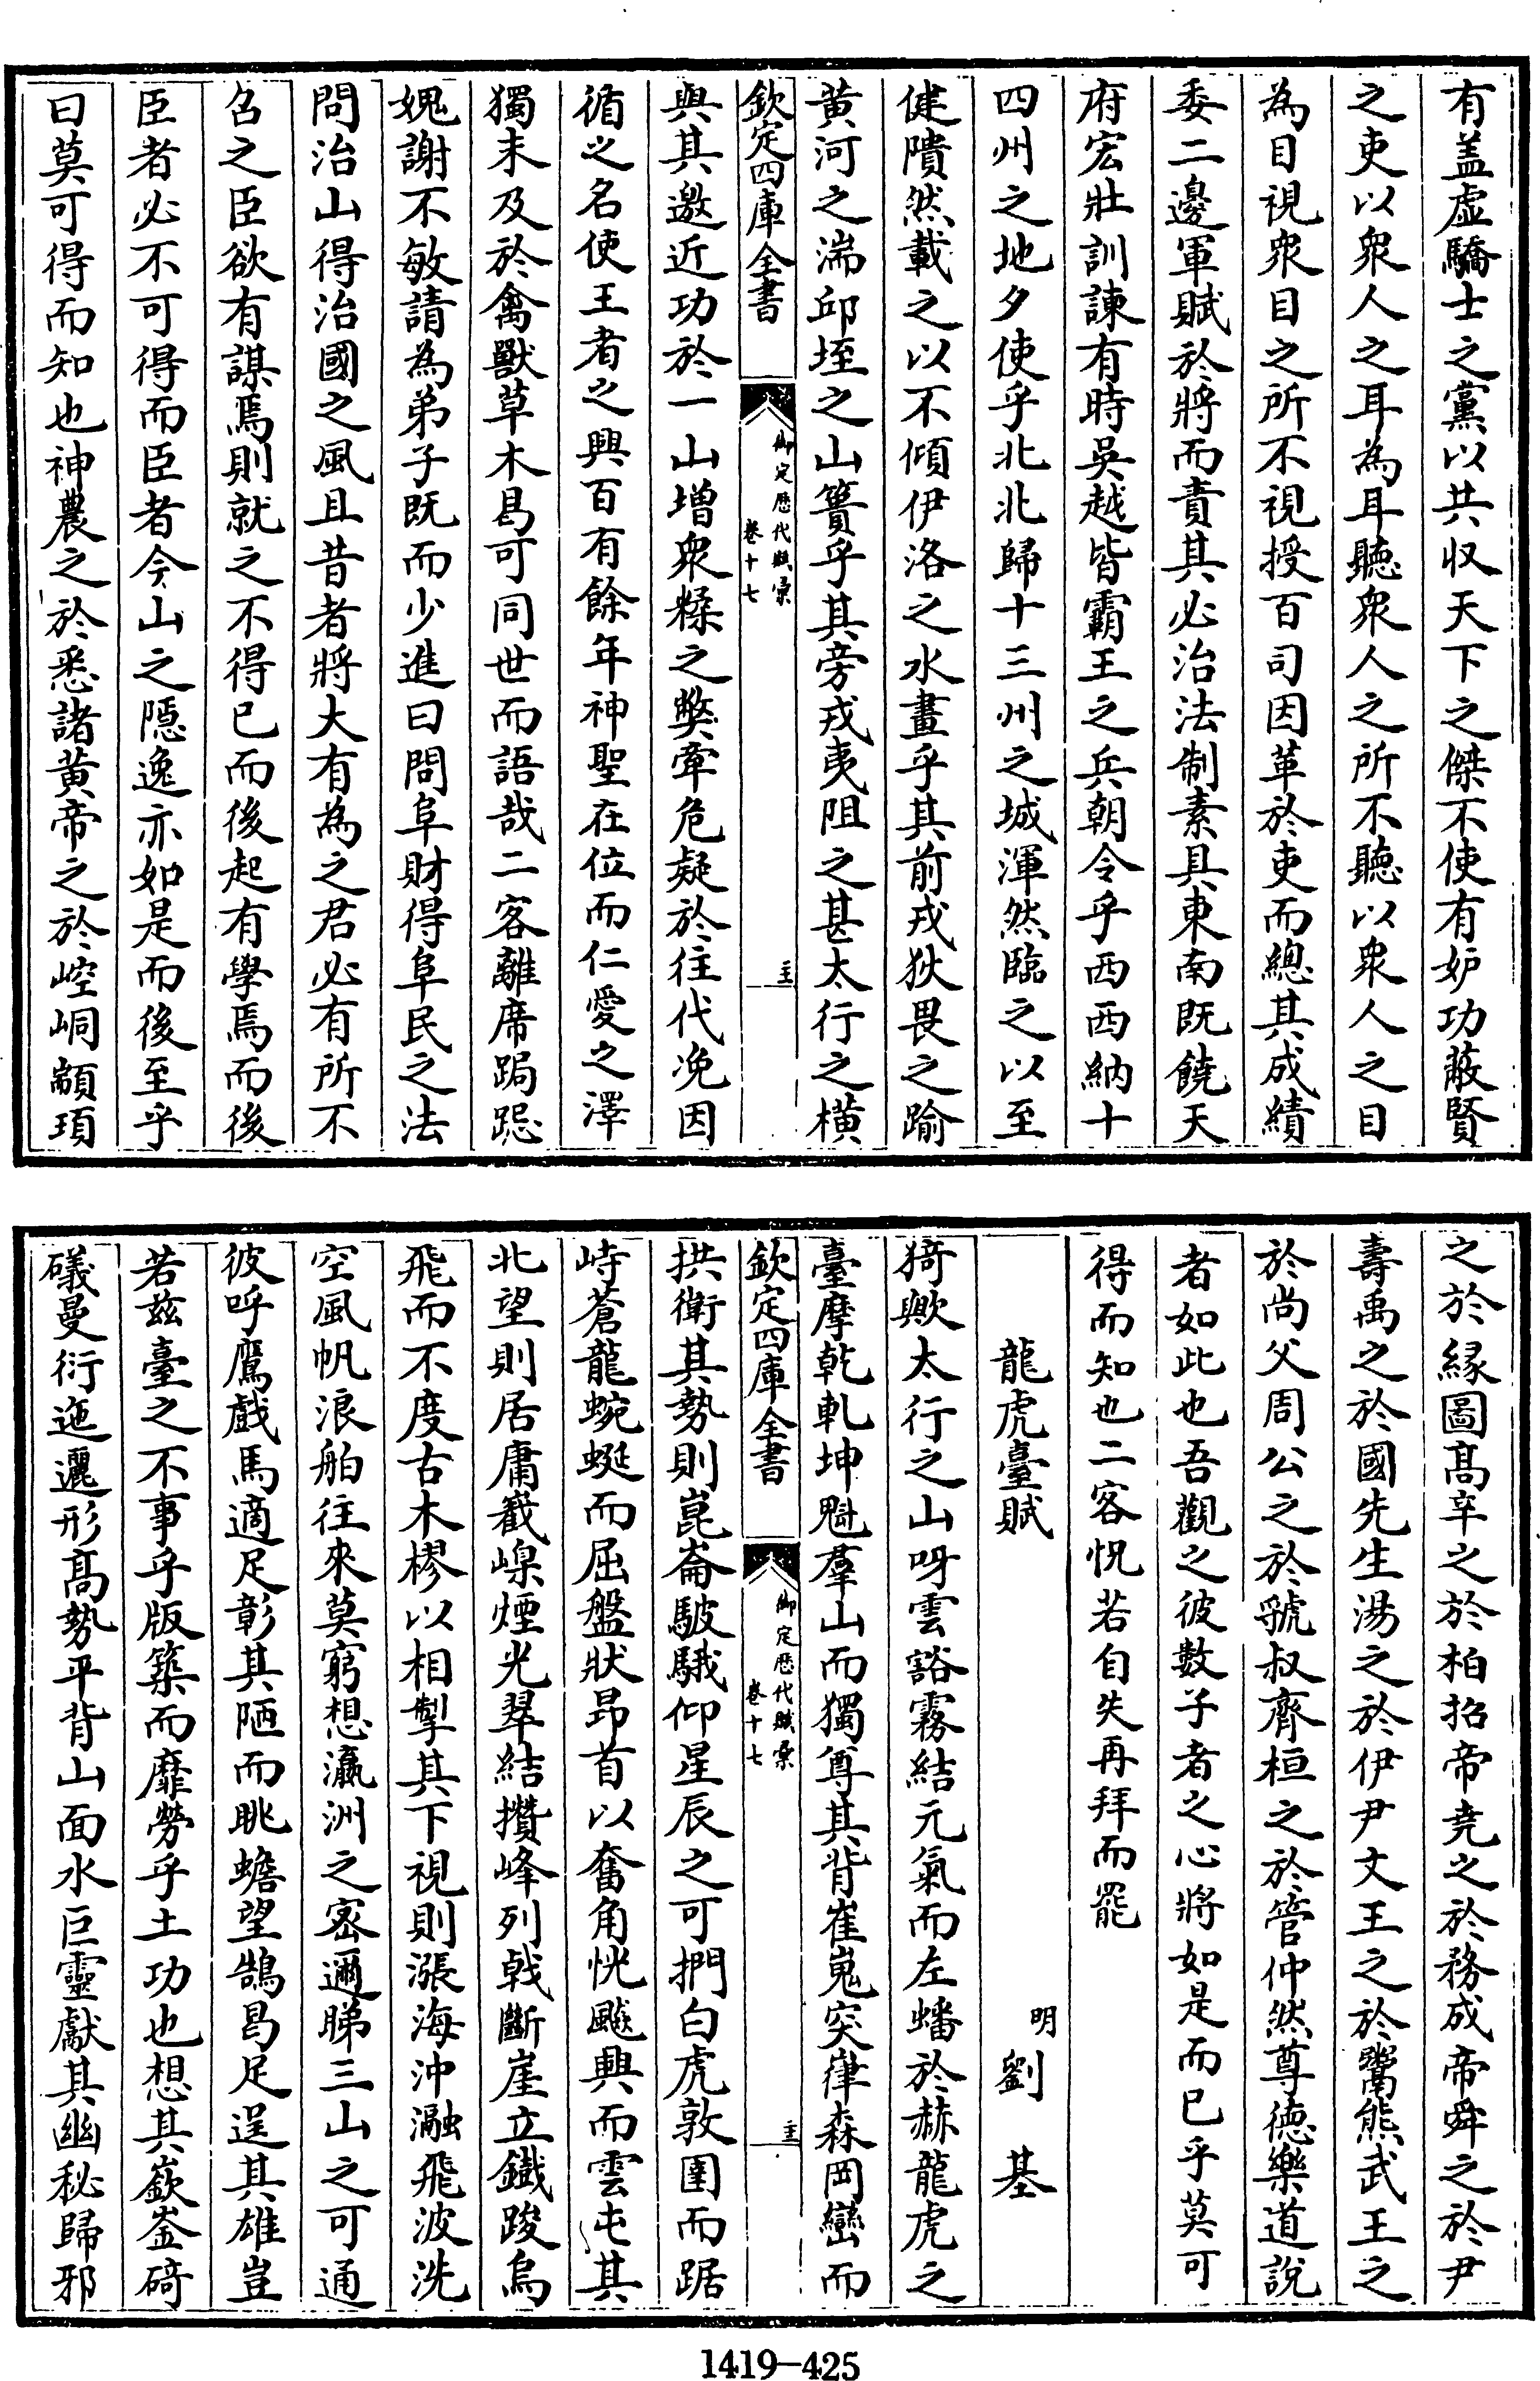 有盖虚驕士之黨以共収天下之傑不使有妒功蔽賢
之吏以衆人之耳為耳聽衆人之所不聽以衆人之目
為目視衆目之所不視授百司因革於吏而總其成績
委二邊軍賦於將而責其必治法制素具東南既饒天
府宏壯訓諫有時吳越皆霸王之兵朝令乎西西納十
四州之地夕使乎北北歸十三州之城渾然臨之以至
健隤然載之以不傾伊洛之水畫乎其前戎狄畏之踰
黄河之湍邱垤之山簣乎其旁戎夷阻之甚太行之横
欽定四庫全書
御定歴代賦彙
卷十七
與其邀近功於一山增衆糅之獘牽危疑於往代凂因
循之名使王者之興百有餘年神聖在位而仁愛之澤
獨未及於禽獸草木曷可同世而語哉二客離席跼跽
媿謝不敏請為弟子既而少進曰問阜財得阜民之法
問治山得治國之風且昔者將大有為之君必有所不
召之臣欲有謀焉則就之不得已而後起有學焉而後
臣者必不可得而臣者今山之隠逸亦如是而後至乎
曰莫可得而知也神農之於悉諸黄帝之於崆峒顓頊
之於緣圖髙辛之於柏招帝堯之於務成帝舜之於尹
壽禹之於國先生湯之於伊尹文王之於鬻熊武王之
於尚父周公之於虢叔齊桓之於管仲然尊徳樂道說
者如此也吾觀之彼數子者之心將如是而已乎莫可
得而知也二客怳若自失再拜而罷
龍虎臺賦
明
劉基
猗歟太行之山呀雲豁霧結元氣而左蟠於赫龍虎之
臺摩乾軋坤魁羣山而獨尊其背崔嵬突嵂森岡巒而
欽定四庫全書
御定歴代賦彙
卷十七
拱衛其勢則崑崙駊騀仰星辰之可捫白虎敦圉而踞
峙蒼龍蜿蜒而屈盤狀昂首以奮角恍飈興而雲屯其
北望則居庸嶻嵲煙光翠結攢峰列戟斷崖立鐵踆烏
飛而不度古木樛以相掣其下視則漲海沖瀜飛波洗
空風帆浪舶往來莫窮想瀛洲之宻邇睇三山之可通
彼呼鷹戲馬適足彰其陋而眺蟾望鵠曷足逞其雄豈
若兹臺之不事乎版築而靡勞乎土功也想其嶔崟碕
礒曼衍迤邐形髙勢平背山面水巨靈獻其幽秘歸邪
1419-425